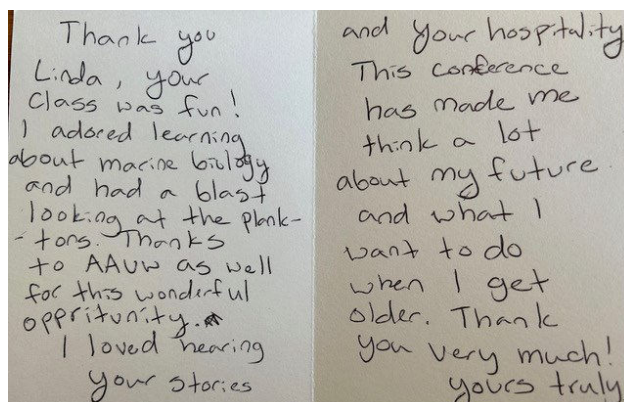 Thank you
Linda, your
class was fun!
I adored learning
about marine biology
and had a blast
looking at the plank-
-tons. Thanks
to AAUW as well
for this wonderful
oppritunity.
I loved hearing
your stories
and your hospitality
This conference
has made me
think a lot
about my future
and what I
want to do
when I get
older. Thank
you very much!
yours truly